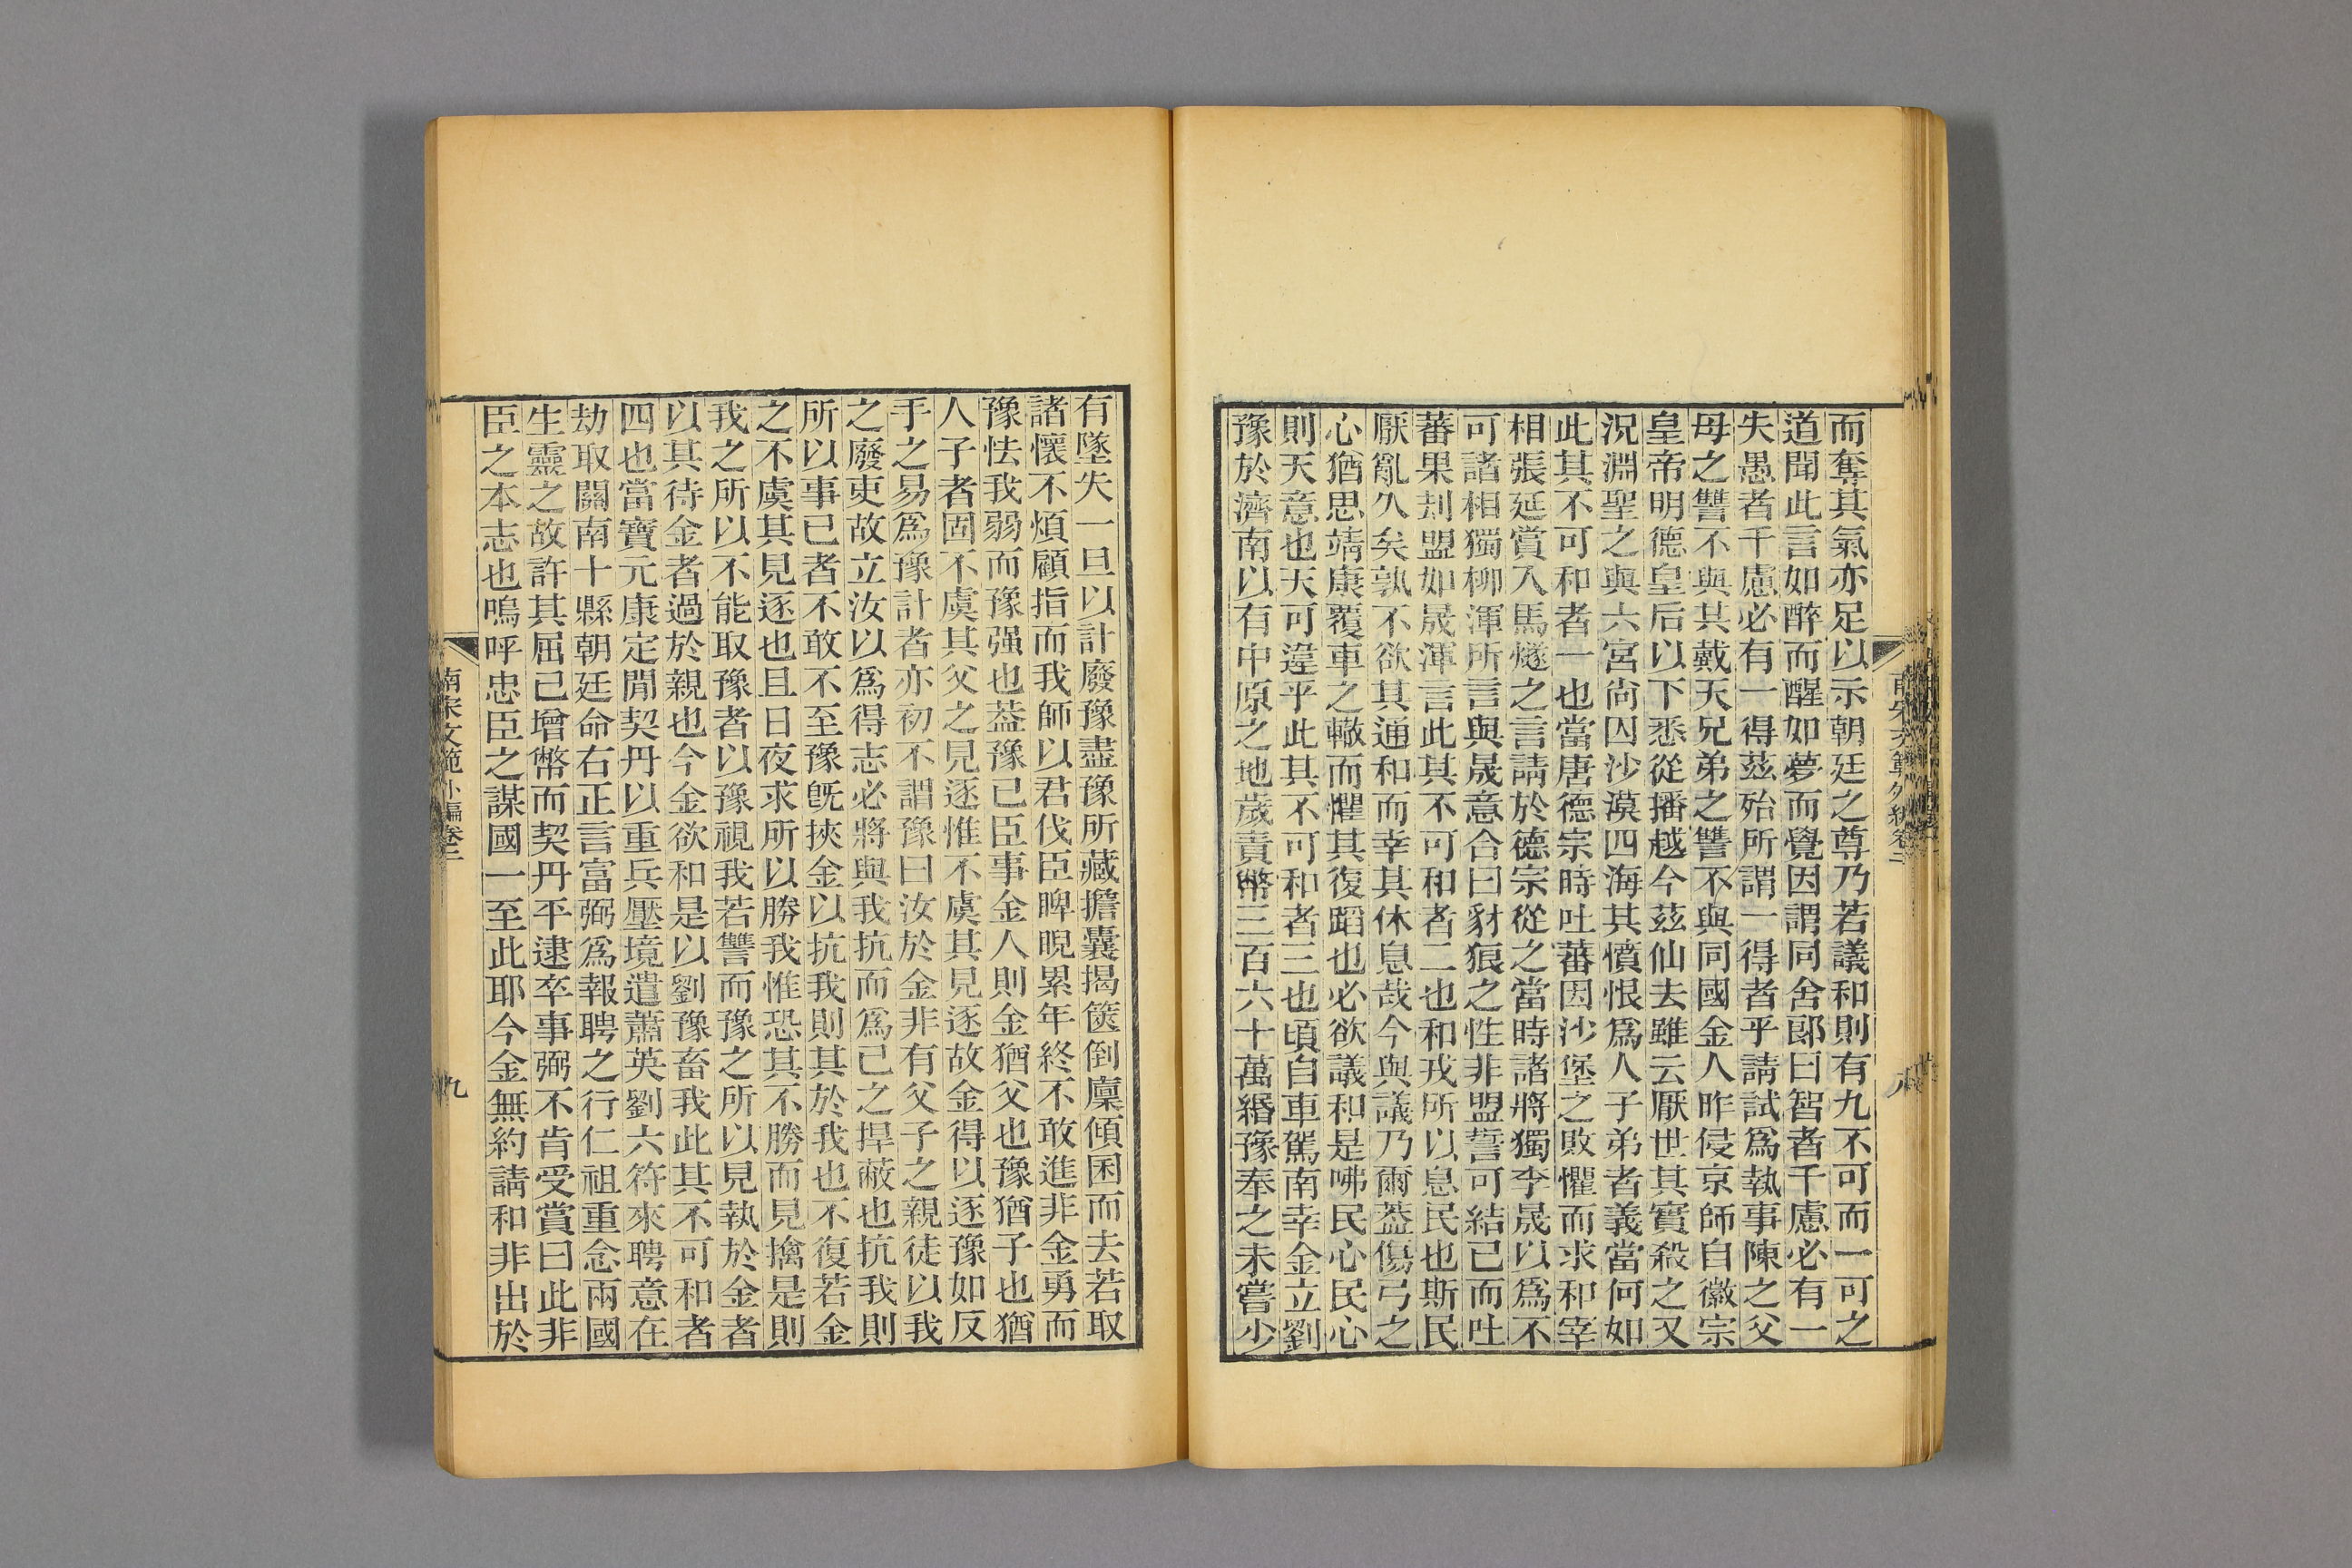 而奪其氣亦足以示朝廷之尊乃若議和則有九不可而一可之
道聞此言如醉而醒如夢而覺因謂同舍郎曰智者千慮必有一
失愚者千慮必有一得茲殆所謂一得者乎請試爲執事陳之父
母之讐不與其戴天兄弟之讐不與同國金人昨侵京師自徽宗
皇帝明德皇后以下悉從播越今茲仙去雖云厭世其實殺之又
況淵聖之與六宮尙囚沙漠四海其憤恨爲人子弟者義當何如
此其不可和者一也當唐德宗時吐蕃因沙堡之敗懼而求和宰
相張延賞入馬燧之言請於德宗從之當時諸將獨李晟以爲不
可諸相獨柳渾所言與晟意合曰豺狼之性非盟誓可結已而吐
蕃果刦盟如晟渾言此其不可和者二也和戎所以息民也斯民
厭亂久矣孰不欲其通和而幸其休息哉今與議乃爾葢傷弓之
心猶思靖康覆車之轍而懼其復蹈也必欲議和是咈民心民心
則天意也天可違乎此其不可和者三也頃自車駕南幸金立劉
豫於濟南以有中原之地歲責幣三百六十萬緡豫奉之未嘗少
南宋文範外編卷二
八
有墜失一旦以計廢豫盡豫所藏擔囊揭篋倒廩傾囷而去若取
諸懷不煩顧指而我師以君伐臣睥睨累年終不敢進非金勇而
豫怯我弱而豫强也葢豫已臣事金人則金猶父也豫猶子也猶
人子者固不虞其父之見逐惟不虞其見逐故金得以逐豫如反
手之易爲豫計者亦初不謂豫曰汝於金非有父子之親徒以我
之廢吏故立汝以爲得志必將與我抗而爲己之捍蔽也抗我則
所以事已者不敢不至豫旣挾金以抗我則其於我也不復若金
之不虞其見逐也且日夜求所以勝我惟恐其不勝而見擒是則
我之所以不能取豫者以豫視我若讐而豫之所以見執於金者
以其待金者過於親也今金欲和是以劉豫畜我此其不可和者
四也當寶元康定閒契丹以重兵壓境遣蕭英劉六符來聘意在
劫取關南十縣朝廷命右正言富弼爲報聘之行仁祖重念兩國
生靈之故許其屈己增幣而契丹平逮卒事弼不肯受賞曰此非
臣之本志也嗚呼忠臣之謀國一至此耶今金無約請和非出於
南宋文範外編卷二
九